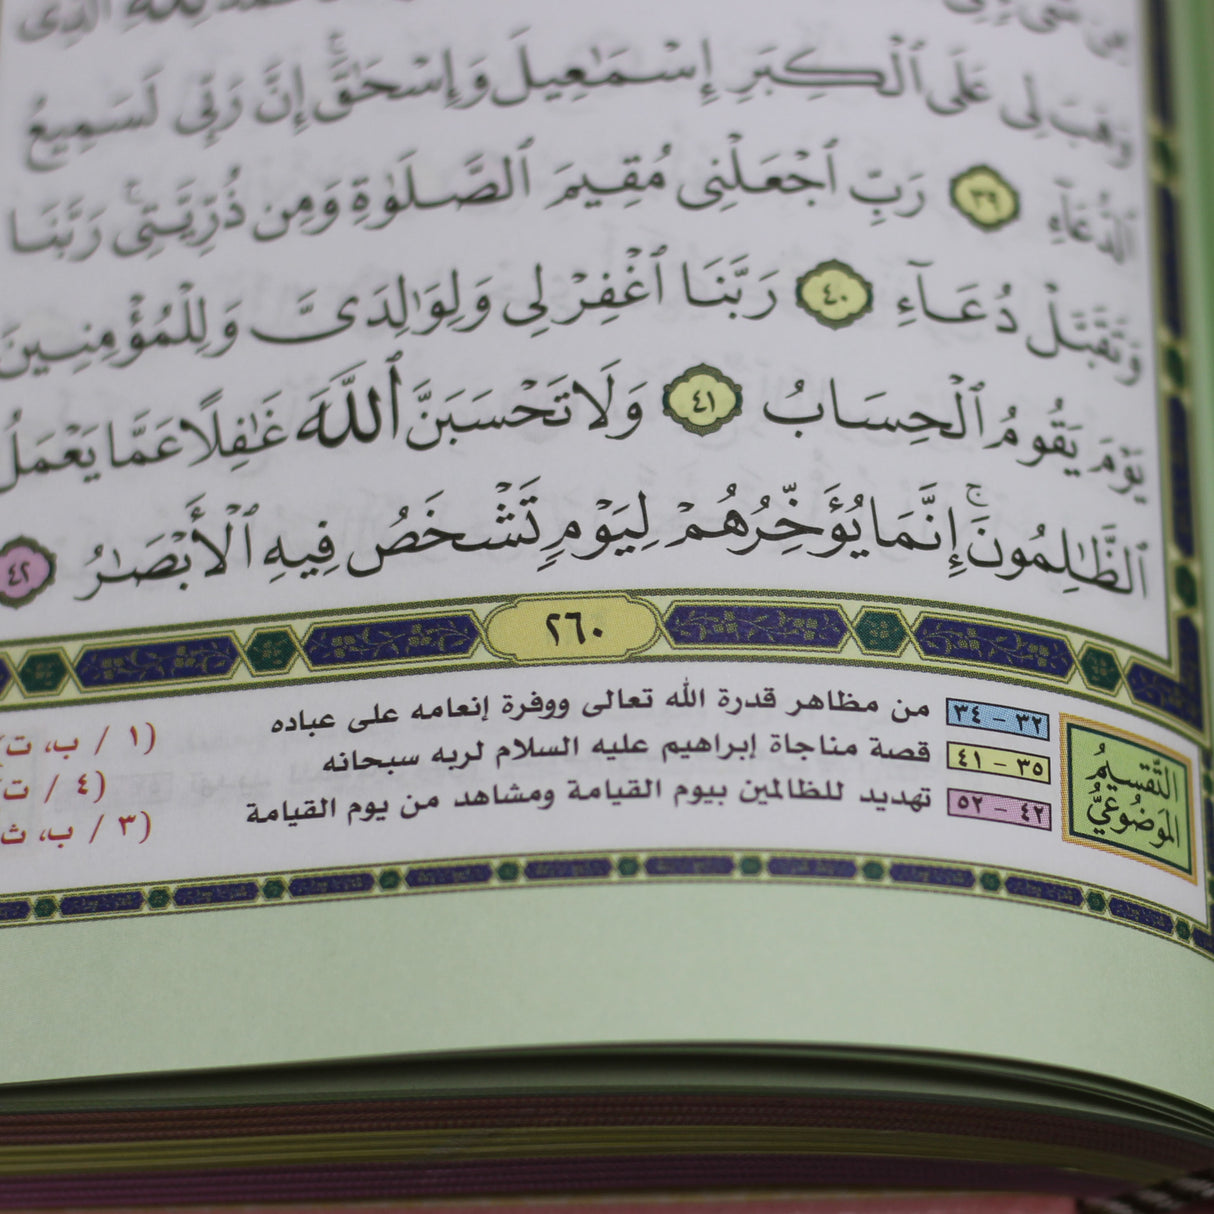 وَهَبَ لِى عَلَى ٱلْكِبَرِ إِسْمَٰعِيلَ وَإِسْحَٰقَۚ إِنَّ رَبِّى لَسَمِيعُ
ٱلدُّعَآءِ ٣٩ رَبِّ ٱجْعَلْنِى مُقِيمَ ٱلصَّلَوٰةِ وَمِن ذُرِّيَّتِىۚ رَبَّنَا
وَتَقَبَّلْ دُعَآءِ ٤٠ رَبَّنَا ٱغْفِرْ لِى وَلِوَٰلِدَىَّ وَلِلْمُؤْمِنِينَ
يَوْمَ يَقُومُ ٱلْحِسَابُ ٤١ وَلَا تَحْسَبَنَّ ٱللَّهَ غَٰفِلًا عَمَّا يَعْمَلُ
ٱلظَّٰلِمُونَۚ إِنَّمَا يُؤَخِّرُهُمْ لِيَوْمٍ تَشْخَصُ فِيهِ ٱلْأَبْصَٰرُ ٤٢
٢٦٠
التَّقسيمُ
المَوضُوعيُّ
٣٢ - ٣٤ من مظاهر قدرة الله تعالى ووفرة إنعامه على عباده (١ / ب، ت)
٣٥ - ٤١ قصة مناجاة إبراهيم عليه السلام لربه سبحانه (٤ / ت
٤٢ - ٥٢ تهديد للظالمين بيوم القيامة ومشاهد من يوم القيامة (٣ / ب، ث